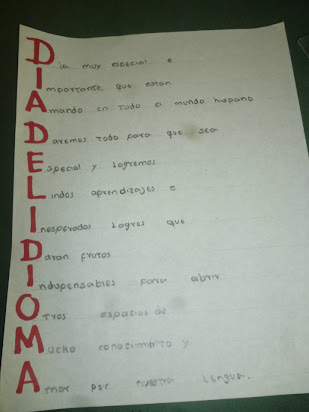 Dia muy especial e
Importante que estan
Amando en todo el mundo hispano
Daremos todo para que sea
Especial y logremos
Lindos aprendizajes e
Inesperados logros que
Daran frutos
Indispensables para abrir
Otros espacios de
Mucho conocimiento y
Amor por nuestra lengua.